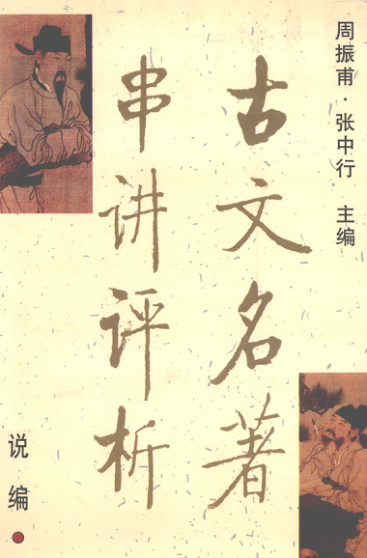 周振甫·张中行 主编
古文名著
串讲评析
说编